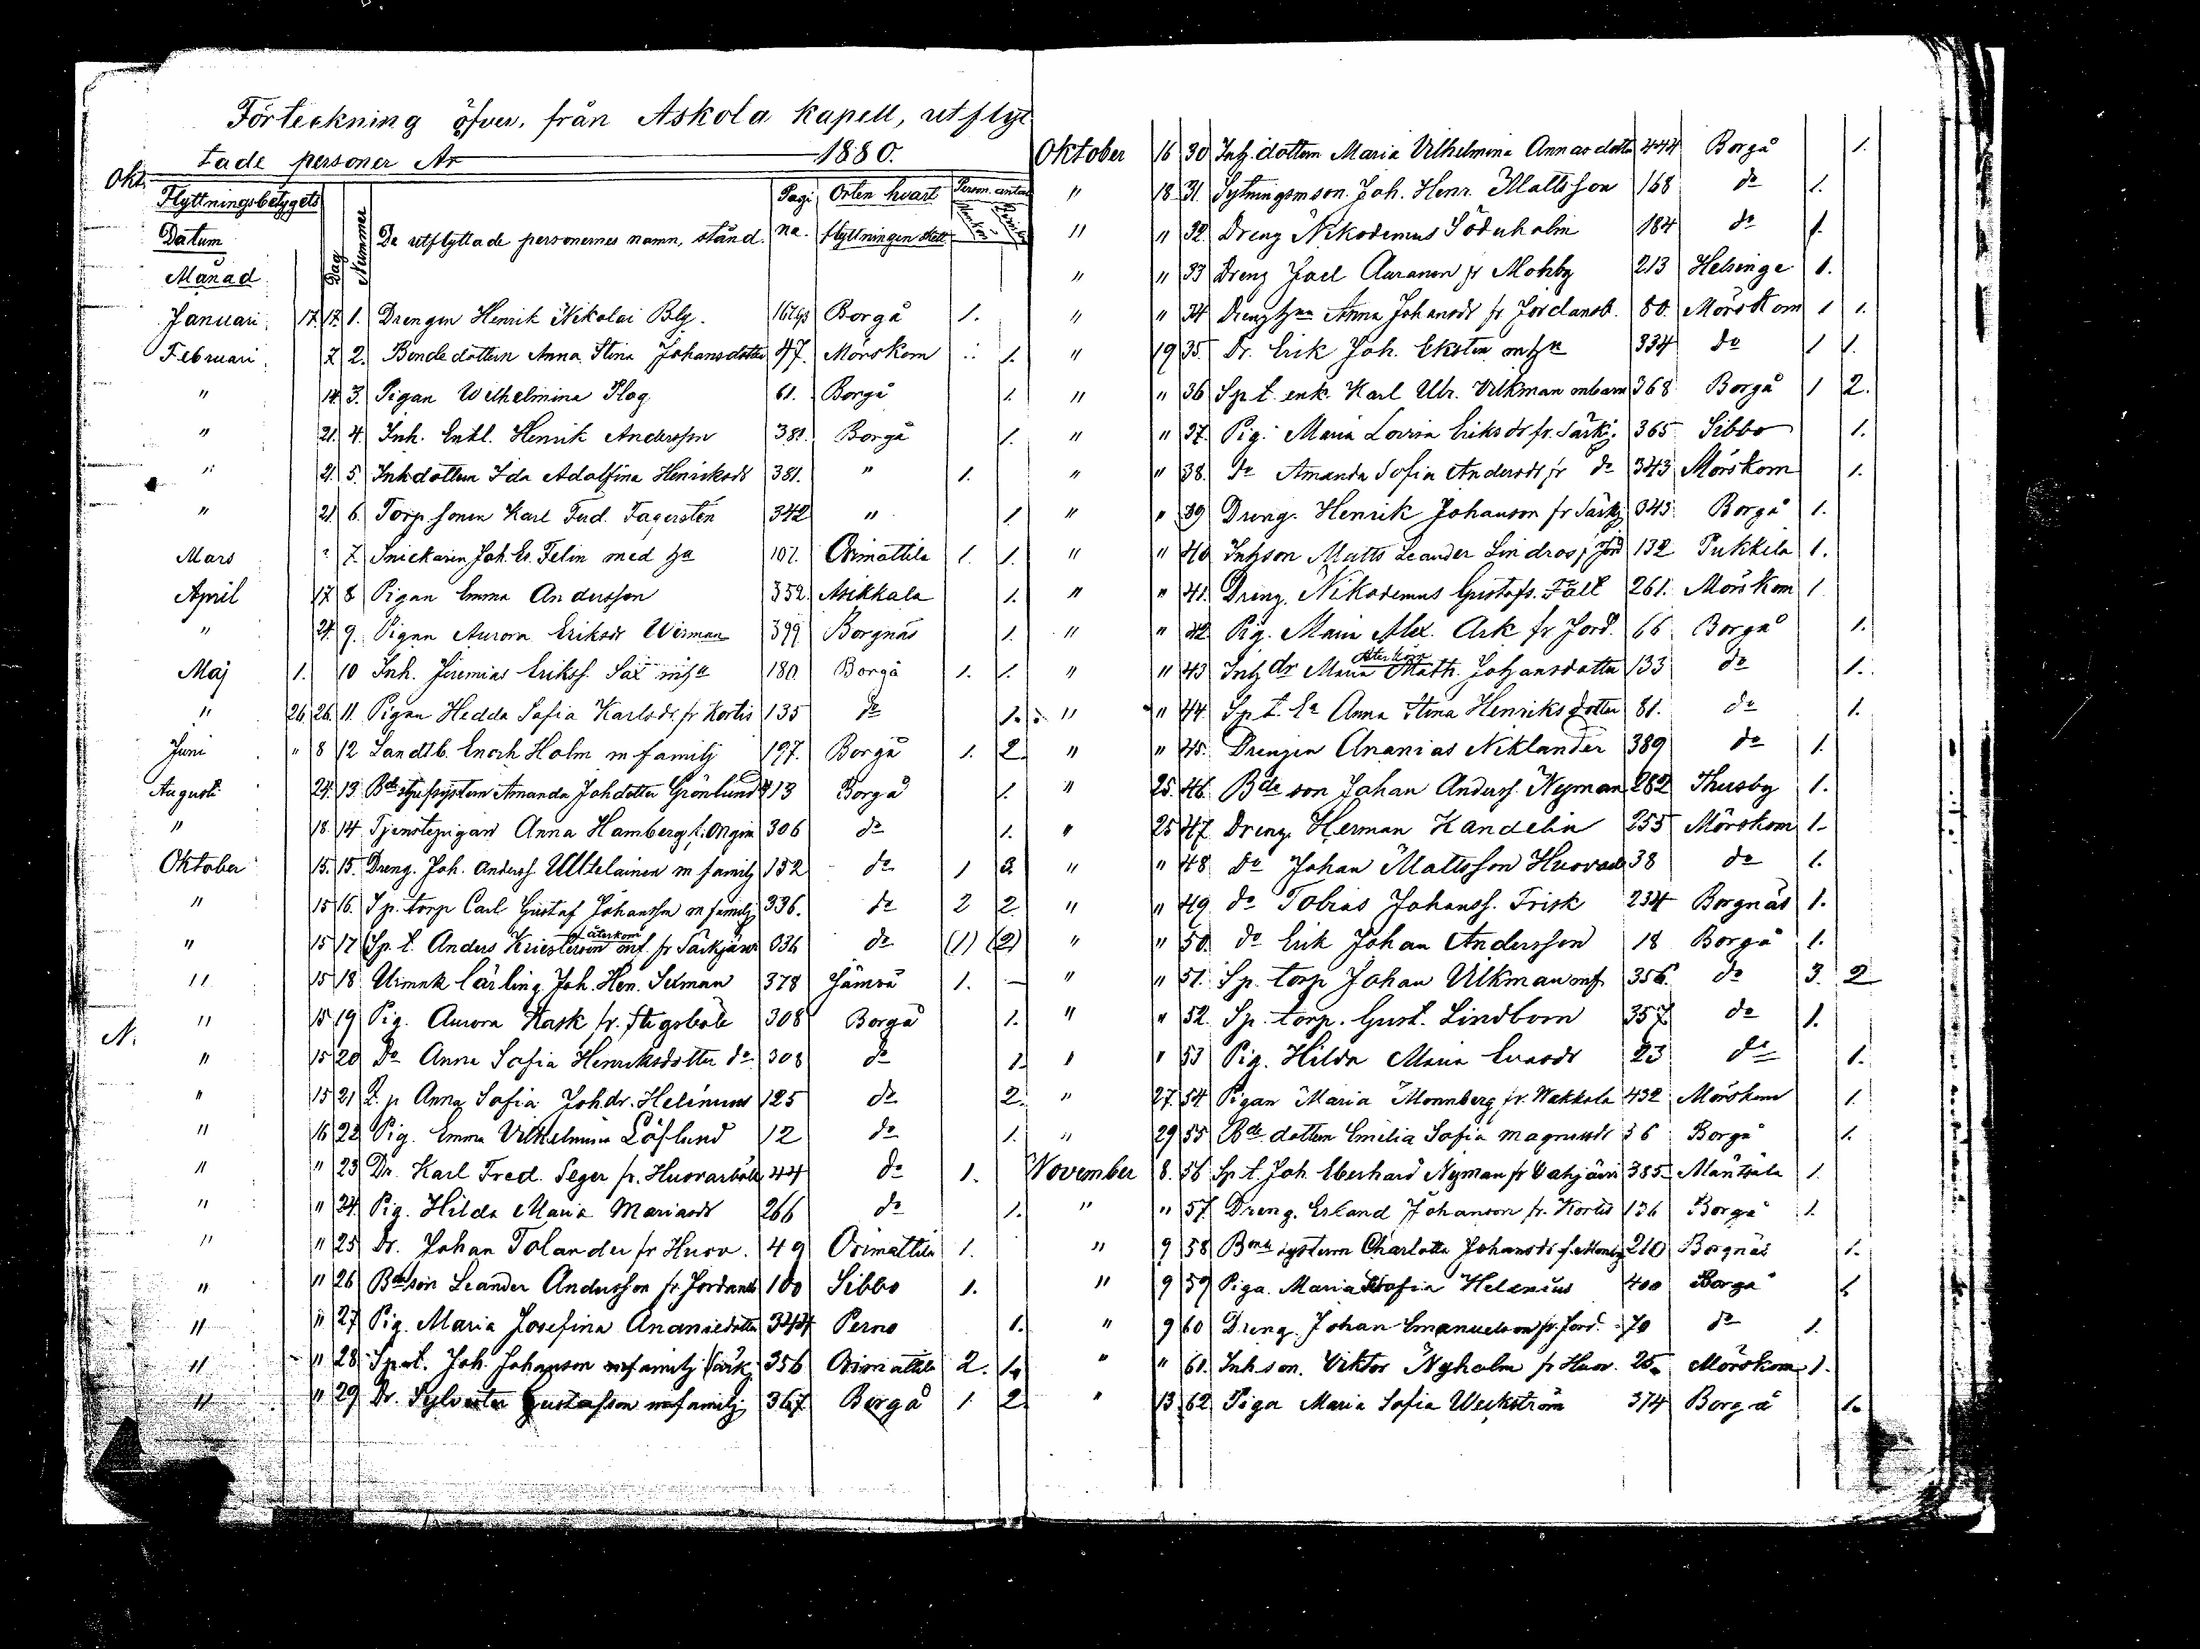 Förteckning öfver, från Askola Kapell, utflyt
tade personer År 1880.
Okt.
Flyttningsbetygets
Datum
Månad
Dag
Nummer
De utflyttade personernes namn, stånd.
Pagi
na.
Orten hvart
flyttningen skett
Person. antal
Januari 17. 17. 1. Drengen Henrik Nikolai Blg. Borgå 1.
Februari 7 2. Bondedottern Anna Stina Johansdotter 47. Mörskom 1.
" 14 3. Pigan Wilhelmina Plog 61. Borgå 1.
" 21. 4. Inh. Enkl. Henrik Andersson 381. Borgå 1.
" 21. 5. Inhdottern Ida Adolfina Henriksdr 381. " 1.
" 21. 6. Torp.sonen Karl Ferd. Fagersten 342 " 1
Mars " 7. Snickaren Joh. Er. Felin med h:a 101. Orimattila 1. 1.
April 17 8 Pigan Emma Andersson 352. Asikkala 1.
" 24. 9. Pigan Aurora Eriksdr Wirman 399 Borgnäs 1.
Maj 1. 10 Inh. Jeremias Erikss. Sax m h:a 180. Borgå 1. 1.
" 26. 26. 11. Pigan Hedda Sofia Karlsdr. fr Kortis 135 do 1.
Juni " 8 12 Landtb. Enoch Holm m familj 197. Borgå 1. 2
Augusti 24. 13. Amanda Johdotter Grönlund 413 Borgå 1.
" 18. 14. Tjenstepigan Anna Hamberg 306 do 1.
Oktober 15. 15. Dreng. Joh. Anderss. Uttelainen m familj 152 do 1 3.
" 15 16. Sp. torp Carl Gustaf Johansson m familj 336. do 2 2
" 15 17 (Sp. t. Anders återkom mf. fr Särkjärvi 336 do (1) (2)
" 15 18 Joh. Hen. 378 1. —
N. " 15 19 Pig. Aurora Kask fr. Stegsböle 308 Borgå 1.
" 15 20 Do Anna Sofia Henriksdotter do 308 do 1.
" 15 21 Anna Sofia Johdr. Helenius 125 do 2.
" 16 22 Pig. Emma Vilhelmina Löflund 12 do 1.
" " 23 Dr. Karl Fred. Seger fr. Huvarböle 44 do 1.
" " 24. Pig. Hilda Maria Mariasdr 266 do 1.
" " 25 Dr. Johan Tolander fr Huvv. 49 Orimattila 1.
" " 26 Bdeson Leander Andersson fr Jordansb 100 Sibbo 1.
" " 27 Pig. Maria Josefina Ananiedotter Perno 1.
" " 28 Sp. t. Joh. Johanson m familj Särkj 356 Orimattila 2. 1.
" " 29 Dr. Sylvester Gustafsson m familj. 367 Borgå 1 2
Oktober 16 30 Inh. dottern Maria Vilhelmina Annasdotter 444 Borgå 1.
" 18 31. Sytningsmson. Joh. Henr. Mattsson 168 do 1.
" " 32. Dreng Nikodemus Söderholm 184 do 1.
" " 33 Dreng Joel Auranen fr Monby 213 Helsinge 1.
" " 34 Anna Johansdr fr Jordansb. 80. Mörskom 1 1.
" 19 35. Dr. Erik Joh. Eksten m h:a 334 do 1 1.
" " 36 Sp t. enk. Karl Ulr. Vilkman m barn 368 Borgå 1 2.
" " 37. Pig. Maria Lovisa Eriksdr fr. Särkj. 365 Sibbo 1.
" " 38. do Amanda Sofia Andersdr fr do 343 Mörskom 1.
" " 39 Dreng. Henrik Johanson fr Särkj 343 Borgå 1.
" " 40 Inhson Matts Leander Lindros fr Jord 132 Pukkila 1.
" " 41. Dreng. Nikodemus Gustafs. Fält 261. Mörskom 1
" " 42 Pig. Maria Alex. Ark fr Jord. 66 Borgå 1.
" " 43 Inh dr Maria återkom Math. Johansdotter 133 do 1.
" " 44. Sp. t. Anna Stina Henriksdotter 81. do 1.
" " 45. Drengen Ananias Niklander 389 do 1.
" 25. 46. Bde son Johan Anderss. Nyman 282 Thusby 1.
" 25 47. Dreng. Herman Kandelin 255 Mörskom 1.
" " 48 do Johan Mattsson 38 do 1.
" " 49. do Tobias Johanss. Frisk 234 Borgnäs 1.
" " 50. do Erik Johan Andersson 18 Borgå 1.
" " 51. Sp. torp Johan Vilkman mf. 356. do 3. 2
" " 52. Sp. torp. Gust. Lindbom 357 do 1.
" " 53 Pig. Hilda Maria Evasdr 23 do 1.
" 27. 54 Pigan Maria Monnberg fr. Wakkola 432 Mörskom 1.
" 29 55 Bde dottern Emilia Sofia Magnusdr 36 Borgå 1.
November 8. 56 Sp. t. Joh. Eberhard Nyman fr Vahijärvi 385 Mäntsälä 1.
" " 57. Dreng. Erland Johanson fr. Kortis 136 Borgå 1.
" 9 58 systern Charlotta Johansdr fr Monby 210 Borgnäs 1.
" 9 59 Piga. Maria Sofia Helenius 400 Borgå 1
" 9 60 Dreng. Johan Emanuelson fr. Jord. 70 do 1.
" " 61. Inhson. Viktor Nyholm fr Huvv. 25. Mörskom 1.
" 13 62 Piga Maria Sofia Weckström 374 Borgå 1.